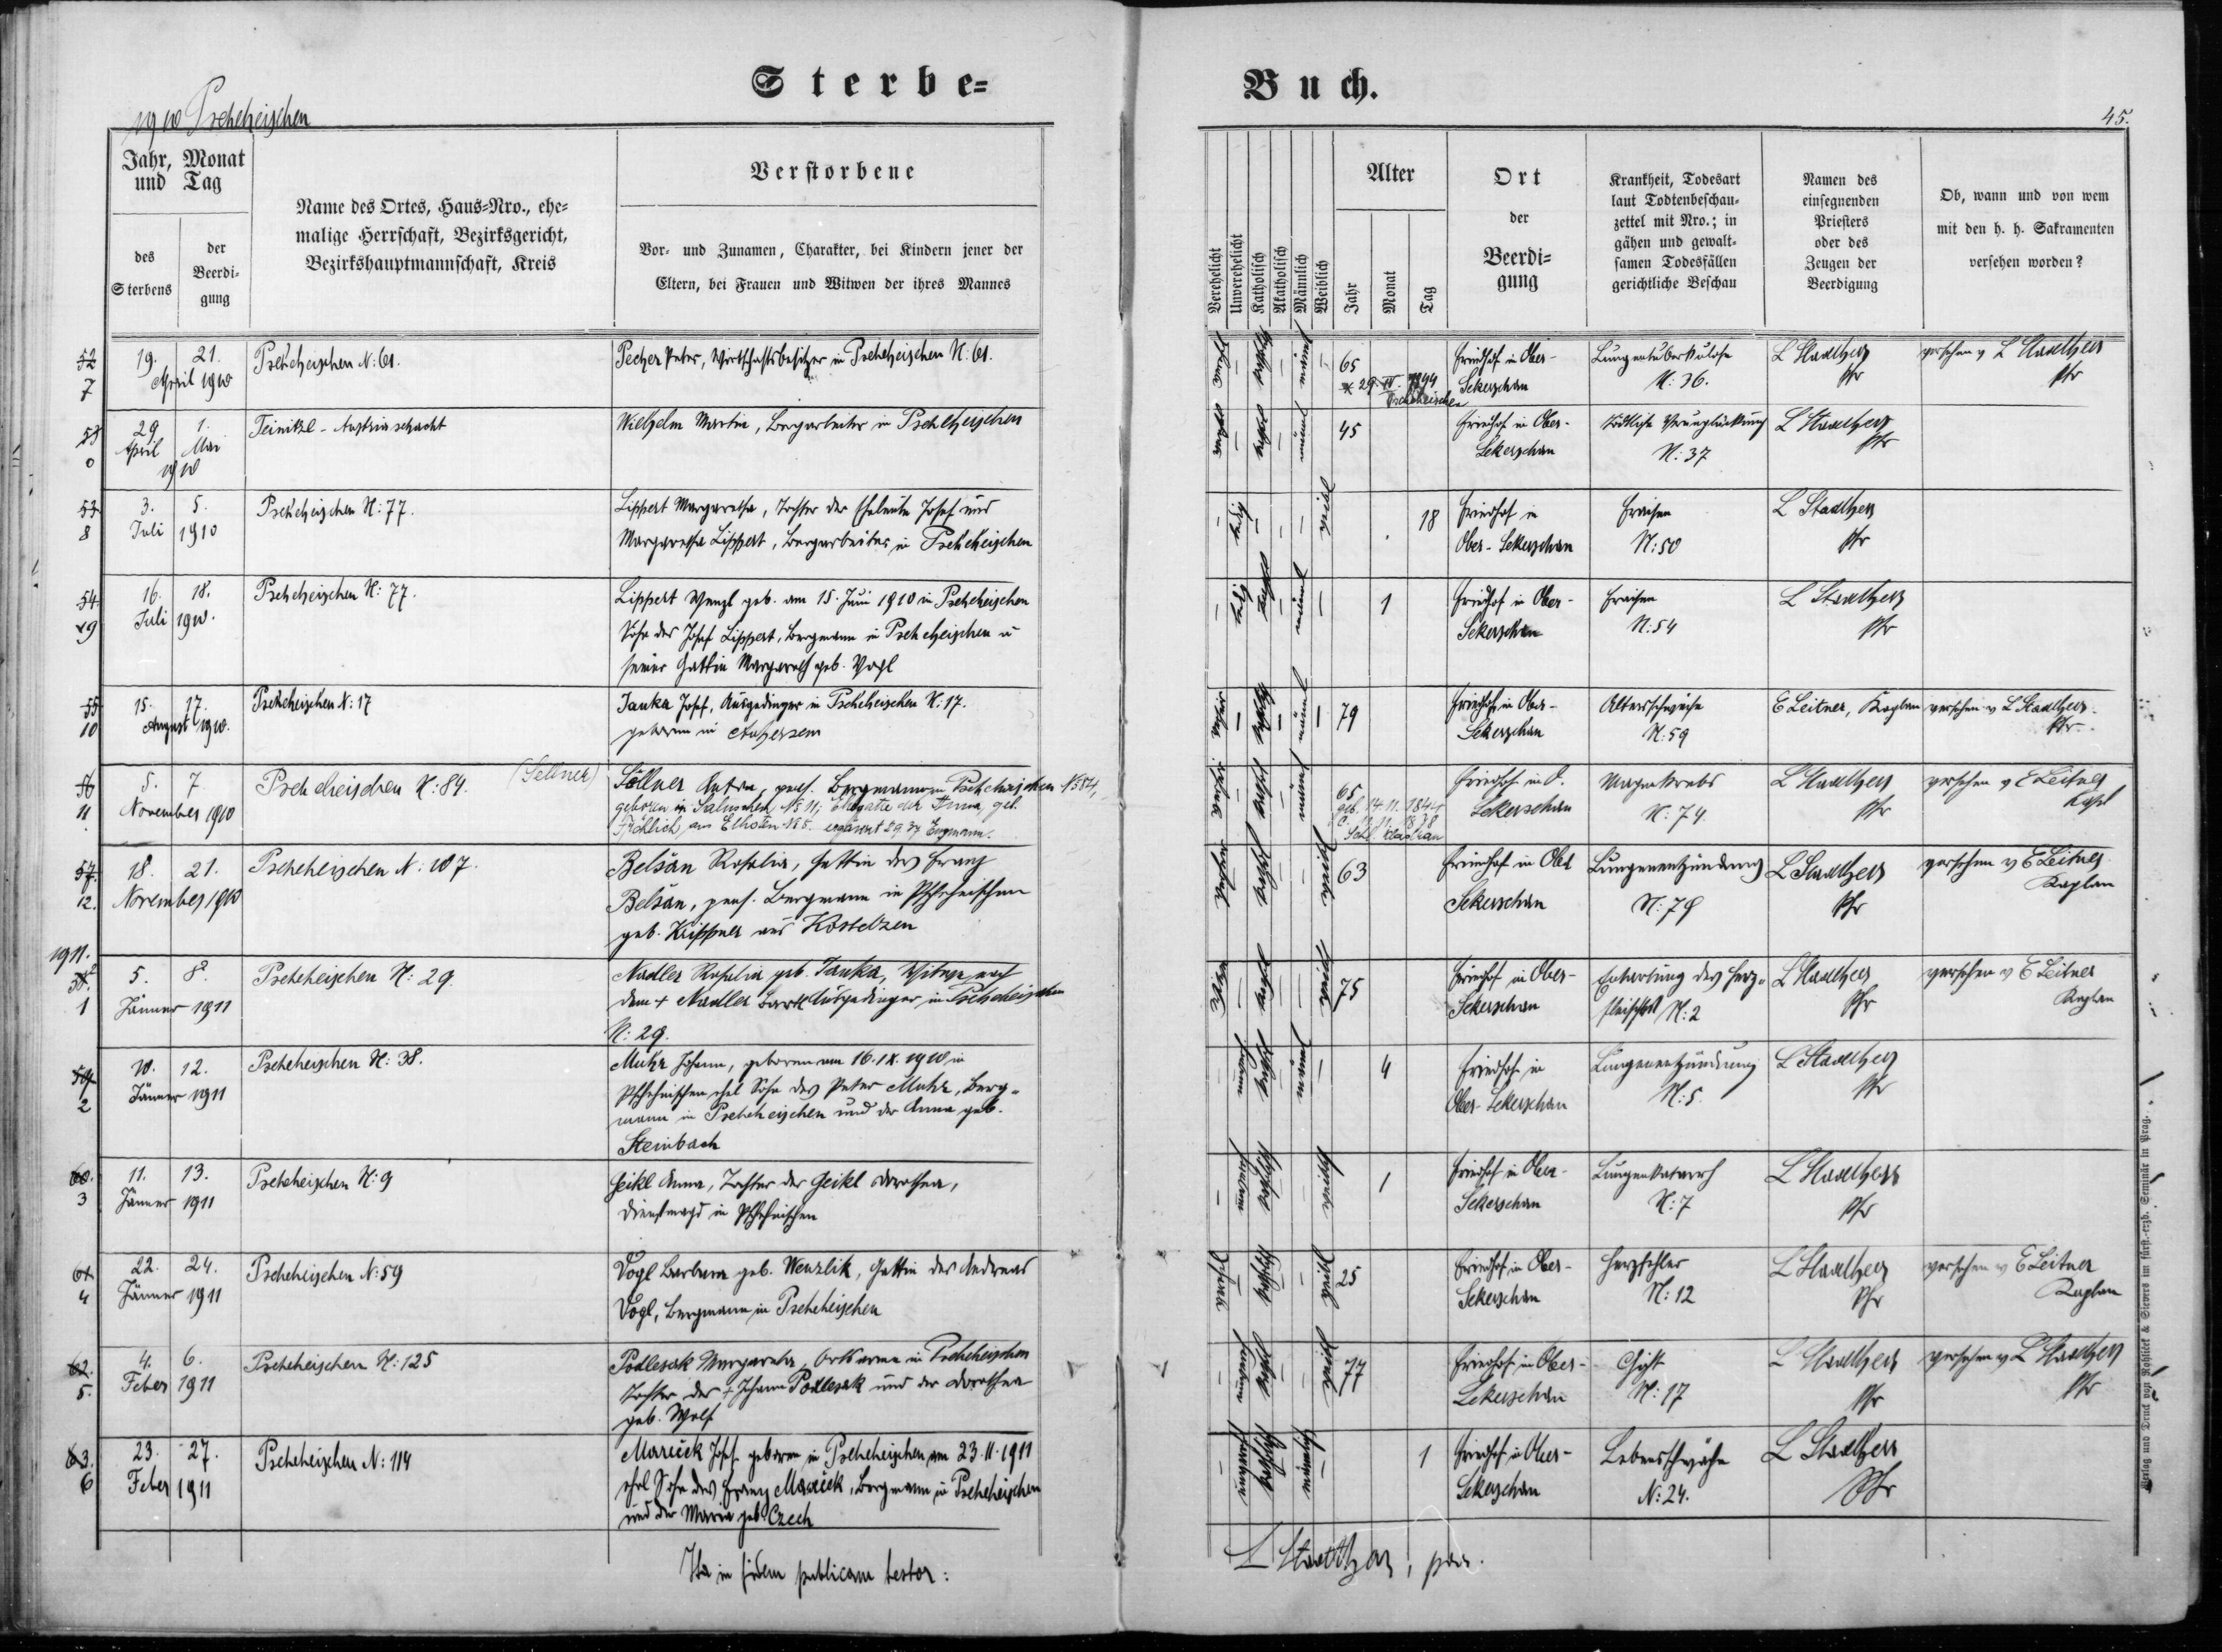 Sterbe-
Buch.
1910 Pscheheischen
45.
Jahr, Monat
und Tag
des
Sterbens
der
Beerdi-
gung
Name des Ortes, Haus-Nro., ehe-
malige Herrschaft, Bezirksgericht,
Bezirkshauptmannschaft, Kreis
Verstorbene
Vor- und Zunamen, Charakter, bei Kindern jener der
Eltern, bei Frauen und Witwen der ihres Mannes
Verehelicht
Unverehelicht
Katholisch
Akatholisch
Männlich
Weiblich
Alter
Jahr
Monat
Tag
Ort
der
Beerdi-
gung
Krankheit, Todesart
laut Todtenbeschau-
zettel mit Nro.; in
gähen und gewalt-
samen Todesfällen
gerichtliche Beschau
Namen des
einsegnenden
Priesters
oder des
Zeugen der
Beerdigung
Ob, wann und von wem
mit den h. h. Sakramenten
versehen worden?
52
7
19. 21.
April 1910
Pscheheischen N: 61.
Pecher Peter, Wirtschaftsbesitzer in Pscheheischen N: 61.
65
Friedhof in Ober-
Sekerschan
Lungentuberkulose
N: 36.
L Stadtherr
Pfr
versehen v L Stadtherr
Pfr
53
0
29 1.
April Mai
1910
Teinitzl - Austriaschacht
Wilhelm Martin, Bergarbeiter in Pscheheischen
45
Friedhof in Ober-
Sekerschan
Tödtliche Verunglückung
N: 37
L Stadtherr
Pfr
53
8
3. 5.
Juli 1910
Pscheheischen N: 77.
Lippert Margaretha, Tochter der Eheleute Josef und
Margaretha Lippert, Bergarbeiter in Pscheheischen
ledig
weibl
18
Friedhof in
Ober-Sekerschan
Fraisen
N: 50
L Stadtherr
Pfr
54
9
16. 18.
Juli 1910.
Pscheheischen N: 77.
Lippert Wenzl geb. am 15. Juni 1910 in Pscheheischen
Sohn des Josef Lippert, Bergmann in Pscheheischen u
seiner Gattin Margareth geb. Vogl
ledig
1
Friedhof in Ober-
Sekerschan
Fraisen
N: 54
L Stadtherr
Pfr
55
10
15. 17.
August 1910.
Pscheheischen N: 17
Janka Josef, Ausgedinger in Pscheheischen N. 17.
geboren in Auherzen
79
Friedhof in Ober-
Sekerschan
Altersschwäche
N: 59
E Leitner, Kaplan
versehen v L Stadtherr
Pfr.
56
11
5. 7
November 1910
Pscheheischen N: 84.
(Sellner)
Söllner Anton, pens. Bergmann in Pscheheischen N: 84,
geboren in Saluschen Nr. 11; Ehegatte der Anna, geb.
Fröhlich, aus Elhoten Nr 5.
65
Friedhof in O.
Sekerschan
Magenkrebs
N: 74.
L Stadtherr
Pfr
versehen v E Leitner
Kapl
57.
12.
18. 21.
November 1910
Pscheheischen N: 107.
Belsan Rosalia, Gattin des Franz
Belsan, pens. Bergmann in Pscheheischen
geb. Krippner aus Kostelzen
63
Friedhof in Ober
Sekerschan
Lungenentzündung
N: 78
L Stadtherr
Pfr
versehen v E Leitner
Kaplan
1911.
58.
1
5. 8.
Jänner 1911
Pscheheischen N: 29.
Nadler Rosalia geb. Janka, Witwe nach
dem + Nadler Barth Ausgedinger in Pscheheischen
N: 29.
75
Friedhof in Ober-
Sekerschan
Entartung des Herz-
fleisches N: 2
L Stadtherr
Pfr
versehen v E Leitner
Kaplan
59
2
10. 12.
Jänner 1911
Pscheheischen N: 38.
Muhr Johann, geboren am 16. IX. 1910 in
Pscheheischen ehel Sohn des Peter Muhr, Berg-
mann in Pscheheischen und der Anna geb.
Steinbach
4
Friedhof in
Ober-Sekerschan
Lungenentzündung
N: 5.
L Stadtherr
Pfr
60.
3
11. 13.
Jänner 1911
Pscheheischen N: 9
Geikl Anna, Tochter der Geikl Dorothea,
Dienstmagd in Pscheheischen
1
Friedhof in Ober-
Sekerschan
Lungenkatarrh
N: 7
L Stadtherr
Pfr
61.
4
22. 24.
Jänner 1911
Pscheheischen N: 59
Vogl Barbara geb. Wenzlik, Gattin des Andreas
Vogl, Bergmann in Pscheheischen
25
Friedhof in Ober-
Sekerschan
Herzfehler
N: 12
L Stadtherr
Pfr
versehen v E Leitner
Kaplan
62.
5.
4. 6.
Feber 1911
Pscheheischen N: 125
Podlesak Margareta, Ortsarme in Pscheheischen
Tochter des + Johann Podlesak und der Dorothea
geb. Wolf
77
Friedhof in Ober-
Sekerschan
Gicht
N: 17
L Stadtherr
Pfr
versehen v L Stadtherr
Pfr
63.
6
23. 27.
Feber 1911
Pscheheischen N: 114
Mareček Josef geboren in Pscheheischen am 23. II. 1911
ehel Sohn des Franz Mareček, Bergmann in Pscheheischen
und der Maria geb Czech
1
Friedhof in Ober-
Sekerschan
Lebensschwäche
N: 24.
L Stadtherr
Pfr
Ita in fidem publicam testor:
L Stadtherr, par.
Verlag und Druck von Rohliček & Sievers im fürst.-erzb. Seminär in Prag.